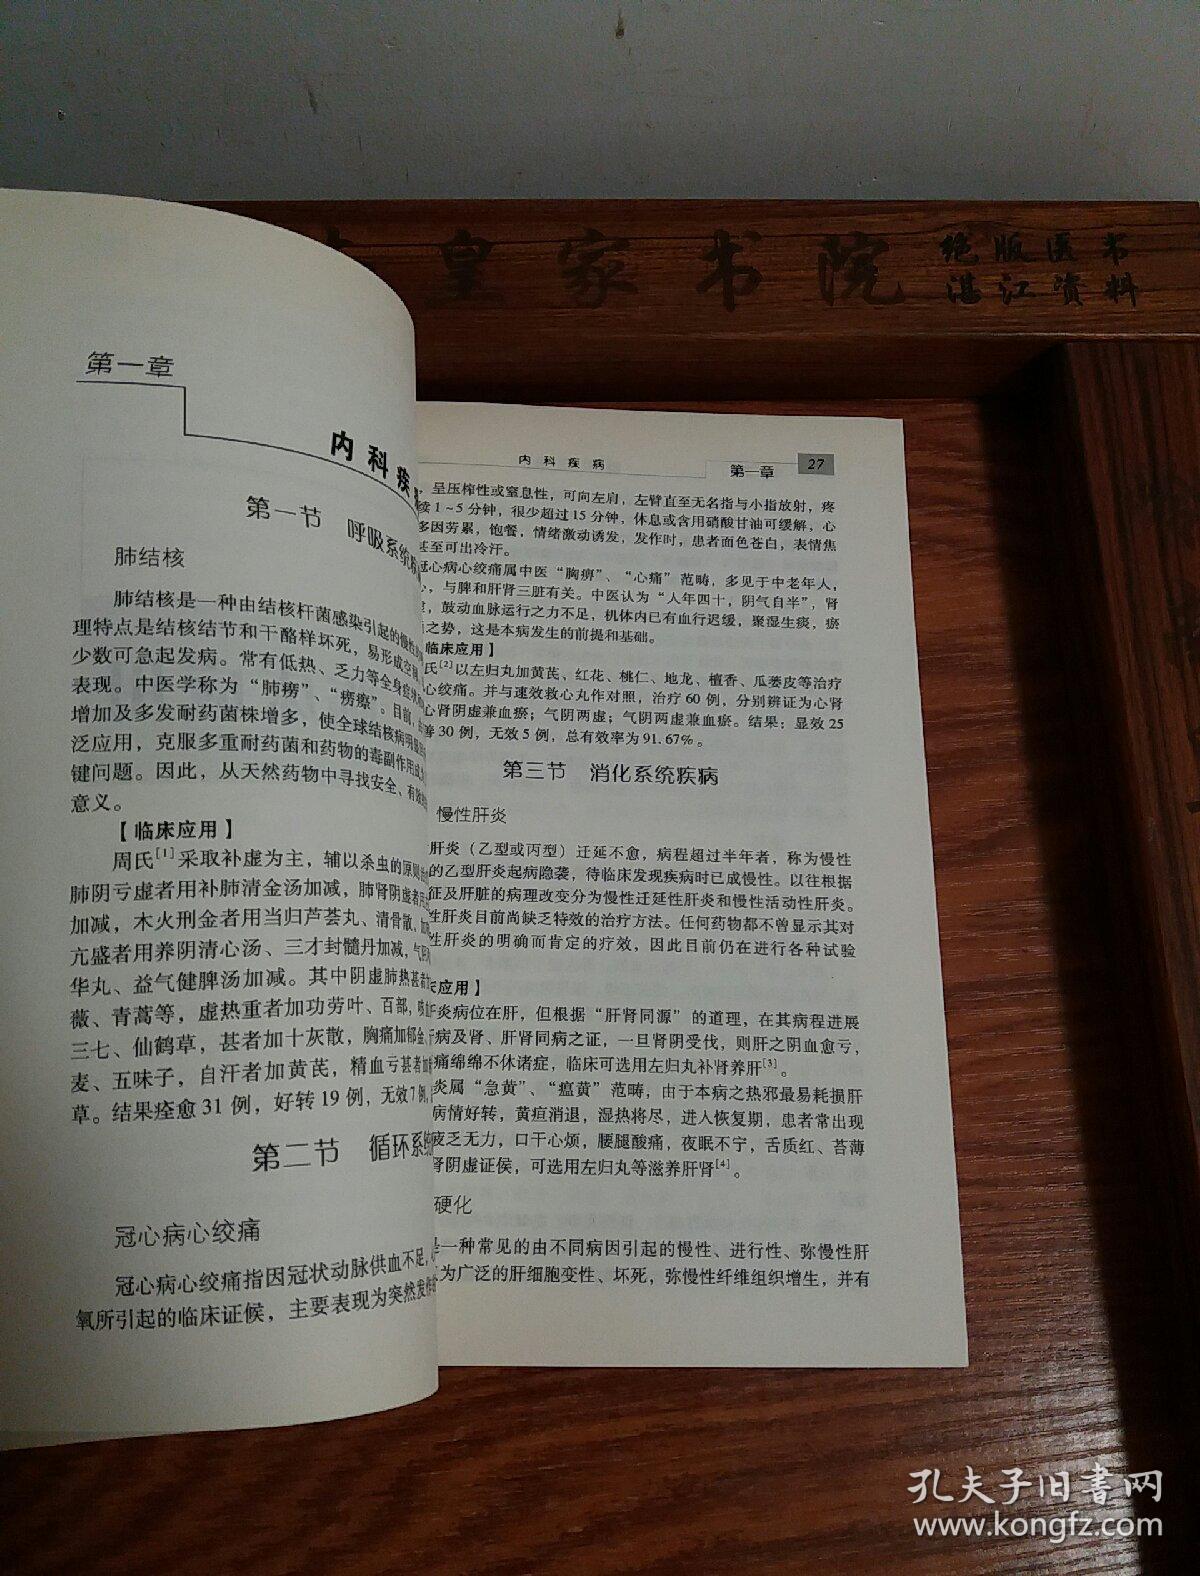 皇家书院
绝版医书
湛江资料
第一章
内科疾
第一节 呼吸系统
肺结核
肺结核是一种由结核杆菌感染引起的慢性
理特点是结核结节和干酪样坏死，易形成空
少数可急起发病。常有低热、乏力等全身症
表现。中医学称为“肺痨”、“痨瘵”。目前，
增加及多发耐药菌株增多，使全球结核病明显
泛应用，克服多重耐药菌和药物的毒副作用成
键问题。因此，从天然药物中寻找安全、有效
意义。
【临床应用】
周氏[1]采取补虚为主，辅以杀虫的原则
肺阴亏虚者用补肺清金汤加减，肺肾阴虚者
加减，木火刑金者用当归芦荟丸、清骨散、
亢盛者用养阴清心汤、三才封髓丹加减，气阴
华丸、益气健脾汤加减。其中阴虚肺热甚者
薇、青蒿等，虚热重者加功劳叶、百部，咳
三七、仙鹤草，甚者加十灰散，胸痛加郁金、
麦、五味子，自汗者加黄芪，精血亏甚者加
草。结果痊愈31例，好转19例，无效7例，
第二节 循环系统
冠心病心绞痛
冠心病心绞痛指因冠状动脉供血不足，
氧所引起的临床证候，主要表现为突然发作
内科疾病 第一章 27
，呈压榨性或窒息性，可向左肩，左臂直至无名指与小指放射，疼
续1～5分钟，很少超过15分钟，休息或含用硝酸甘油可缓解，心
多因劳累，饱餐，情绪激动诱发，发作时，患者面色苍白，表情焦
甚至可出冷汗。
冠心病心绞痛属中医“胸痹”、“心痛”范畴，多见于中老年人，
心，与脾和肝肾三脏有关。中医认为“人年四十，阴气自半”，肾
，鼓动血脉运行之力不足，机体内已有血行迟缓，聚湿生痰，瘀
之势，这是本病发生的前提和基础。
临床应用】
氏[2]以左归丸加黄芪、红花、桃仁、地龙、檀香、瓜蒌皮等治疗
心绞痛。并与速效救心丸作对照，治疗60例，分别辨证为心肾
心肾阴虚兼血瘀；气阴两虚；气阴两虚兼血瘀。结果：显效25
善30例，无效5例，总有效率为91.67%。
第三节 消化系统疾病
慢性肝炎
肝炎（乙型或丙型）迁延不愈，病程超过半年者，称为慢性
的乙型肝炎起病隐袭，待临床发现疾病时已成慢性。以往根据
征及肝脏的病理改变分为慢性迁延性肝炎和慢性活动性肝炎。
性肝炎目前尚缺乏特效的治疗方法。任何药物都不曾显示其对
性肝炎的明确而肯定的疗效，因此目前仍在进行各种试验
应用】
肝炎病位在肝，但根据“肝肾同源”的道理，在其病程进展
肝病及肾、肝肾同病之证，一旦肾阴受伐，则肝之阴血愈亏，
痛绵绵不休诸症，临床可选用左归丸补肾养肝[3]。
炎属“急黄”、“瘟黄”范畴，由于本病之热邪最易耗损肝
病情好转，黄疸消退，湿热将尽，进入恢复期，患者常出现
疲乏无力，口干心烦，腰腿酸痛，夜眠不宁，舌质红、苔薄
肾阴虚证侯，可选用左归丸等滋养肝肾[4]。
硬化
是一种常见的由不同病因引起的慢性、进行性、弥慢性肝
为广泛的肝细胞变性、坏死，弥慢性纤维组织增生，并有
孔夫子旧书网
www.kongfz.com